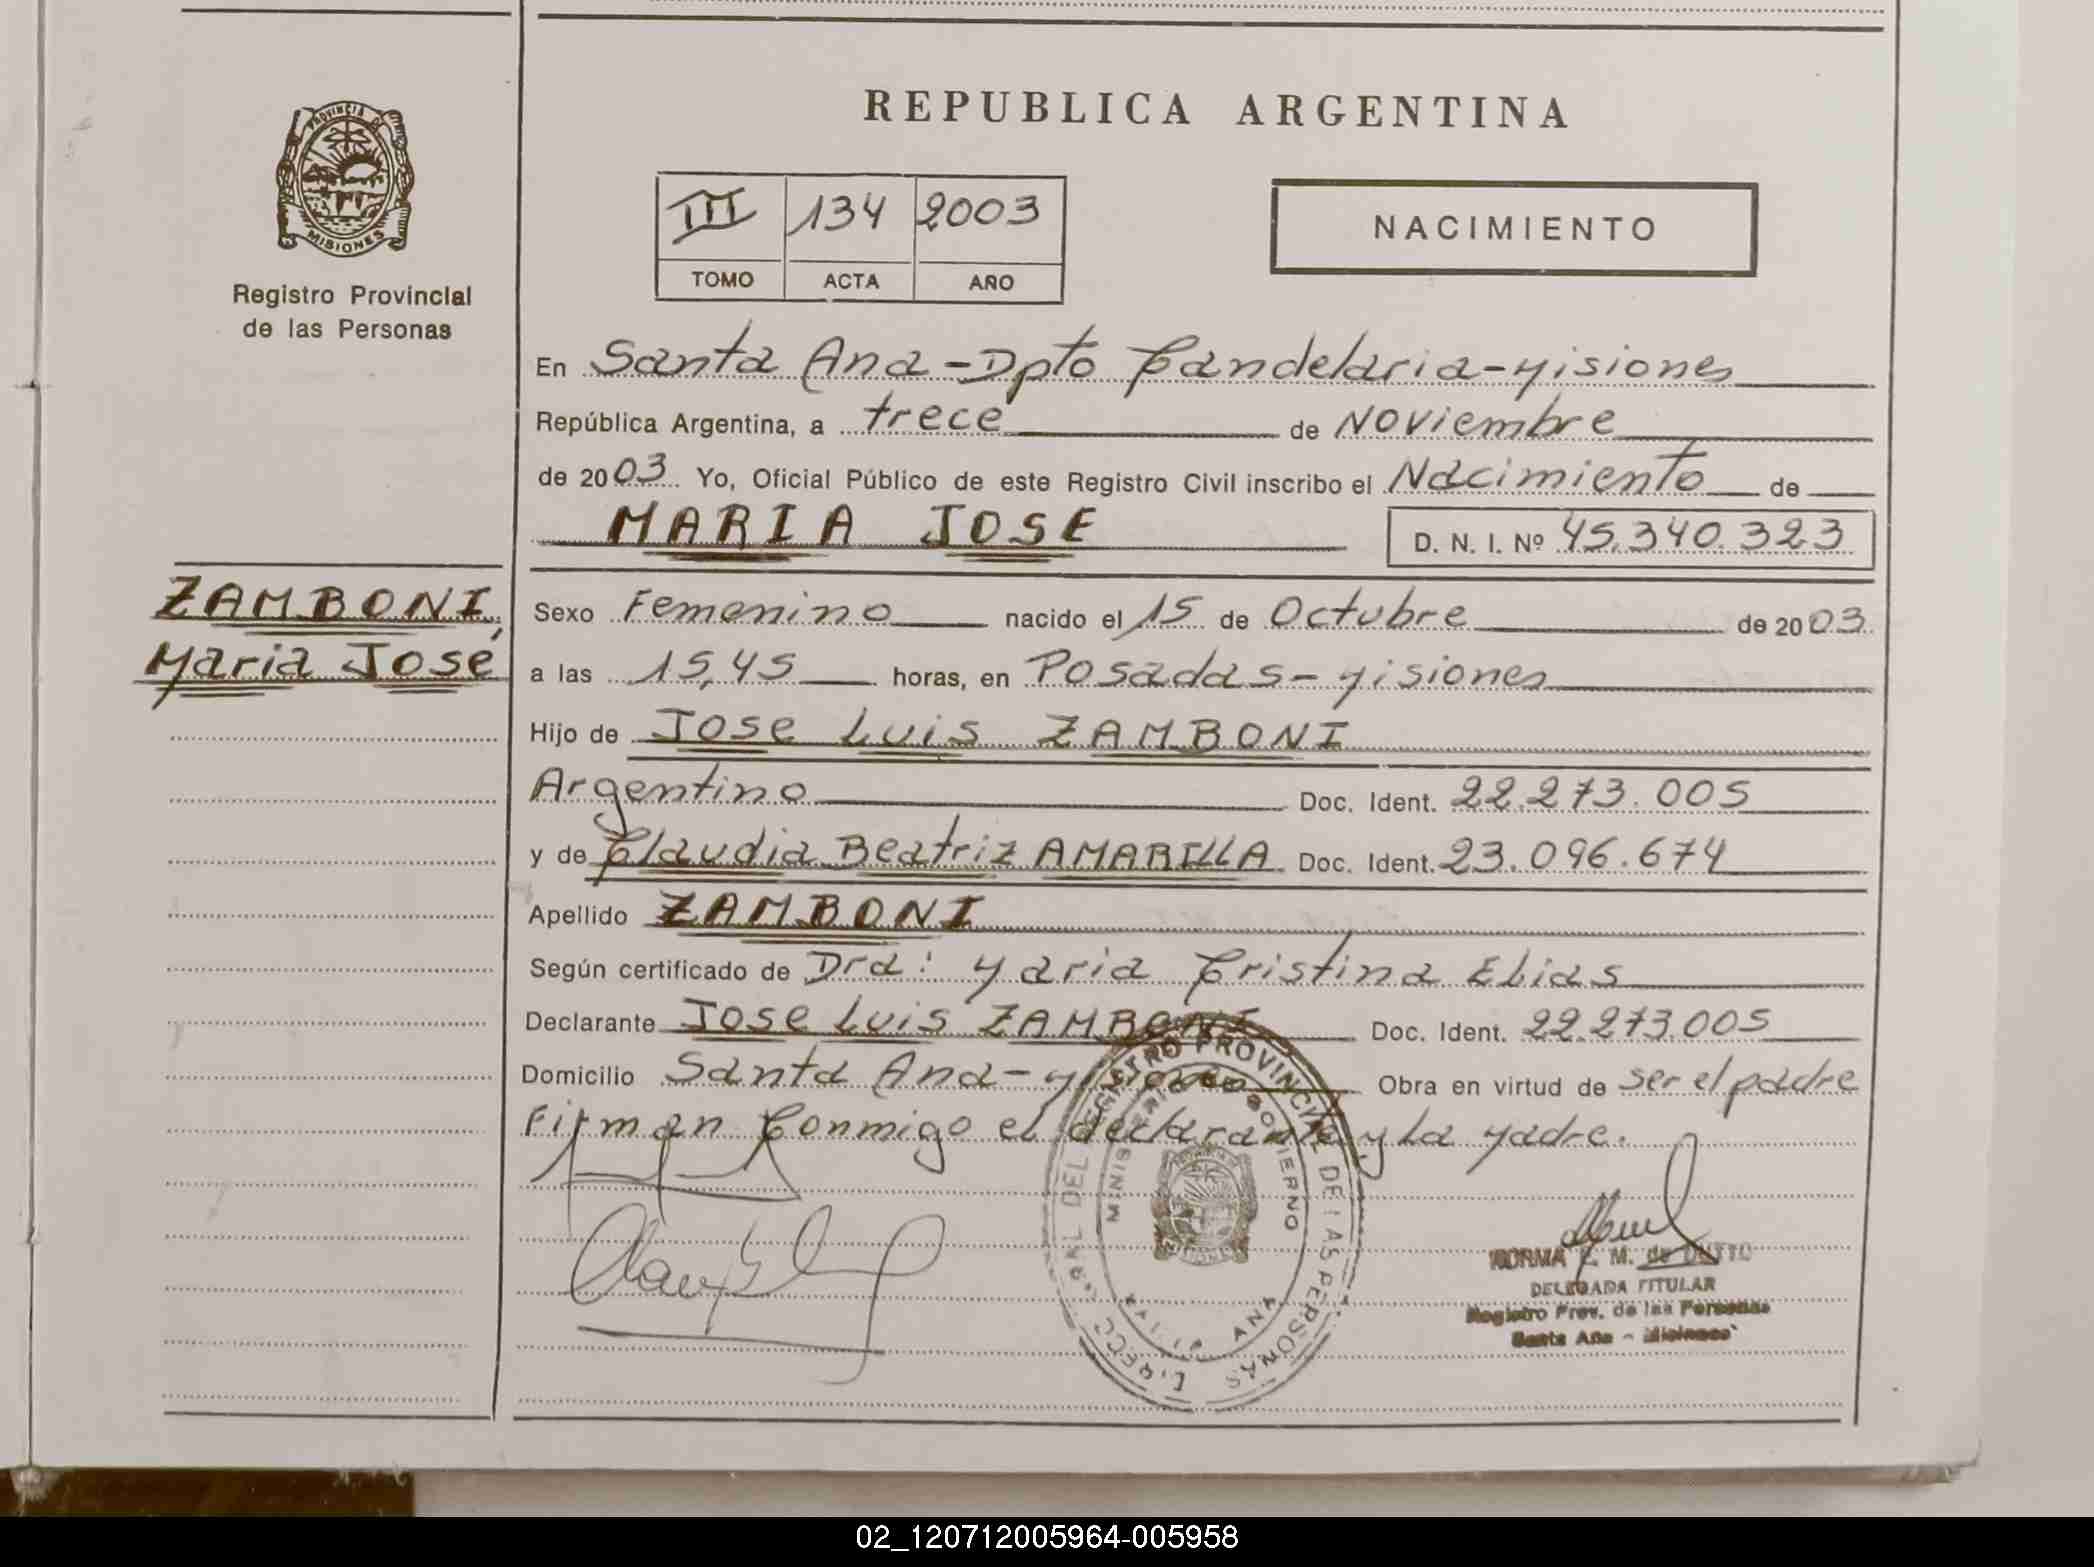 REPUBLICA ARGENTINA
PROVINCIA DE
MISIONES
Registro Provincial
de las Personas
III 134 2003
TOMO ACTA AÑO
NACIMIENTO
En Santa Ana - Dpto Candelaria - Misiones
República Argentina, a trece de Noviembre
de 2003 Yo, Oficial Público de este Registro Civil inscribo el Nacimiento de
MARIA JOSE
D. N. I. Nº 45.340.323
ZAMBONI,
Maria José
Sexo Femenino nacido el 15 de Octubre de 2003
a las 15,45 horas, en Posadas - Misiones
Hijo de Jose Luis ZAMBONI
Argentino Doc. Ident. 22.273.005
y de Claudia Beatriz AMARILLA Doc. Ident. 23.096.674
Apellido ZAMBONI
Según certificado de Dra: Maria Cristina Elias
Declarante Jose Luis ZAMBONI Doc. Ident. 22.273.005
Domicilio Santa Ana - Misiones Obra en virtud de ser el padre
Firman Conmigo el declarante y La Madre.
REGISTRO PROVINCIAL DE LAS PERSONAS
MINISTERIO DE GOBIERNO
ANA
NORMA E. M. de DUTTO
DELEGADA TITULAR
Registro Prov. de las Personas
Santa Ana - Misiones
02_120712005964-005958